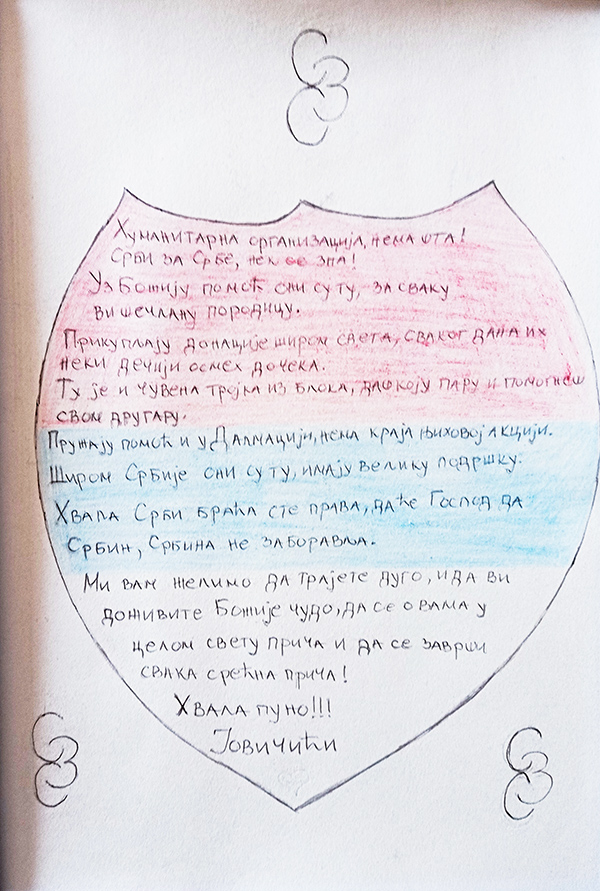 Хуманитарна организација, нема шта!
Срби за Србе, нек се зна!
Уз Божију помоћ они су ту, за сваку
вишечлану породицу.
Прикупљају донације широм света, сваког дана их
неки дечији осмех дочека.
Ту је и чувена тројка из блока, даш коју пару и помогнеш
свом другару.
Пружају помоћ и у Далмацији, нема краја њиховој акцији.
Широм Србије они су ту, имају велику подршку.
Хвала Срби браћа сте права, даће Господ да
Србин, Србина не заборавља.
Ми вам желимо да трајете дуго, и да ви
доживите Божије чудо, да се о вама у
целом свету прича и да се заврши
свака срећна прича!
Хвала пуно!!!
Јовичићи